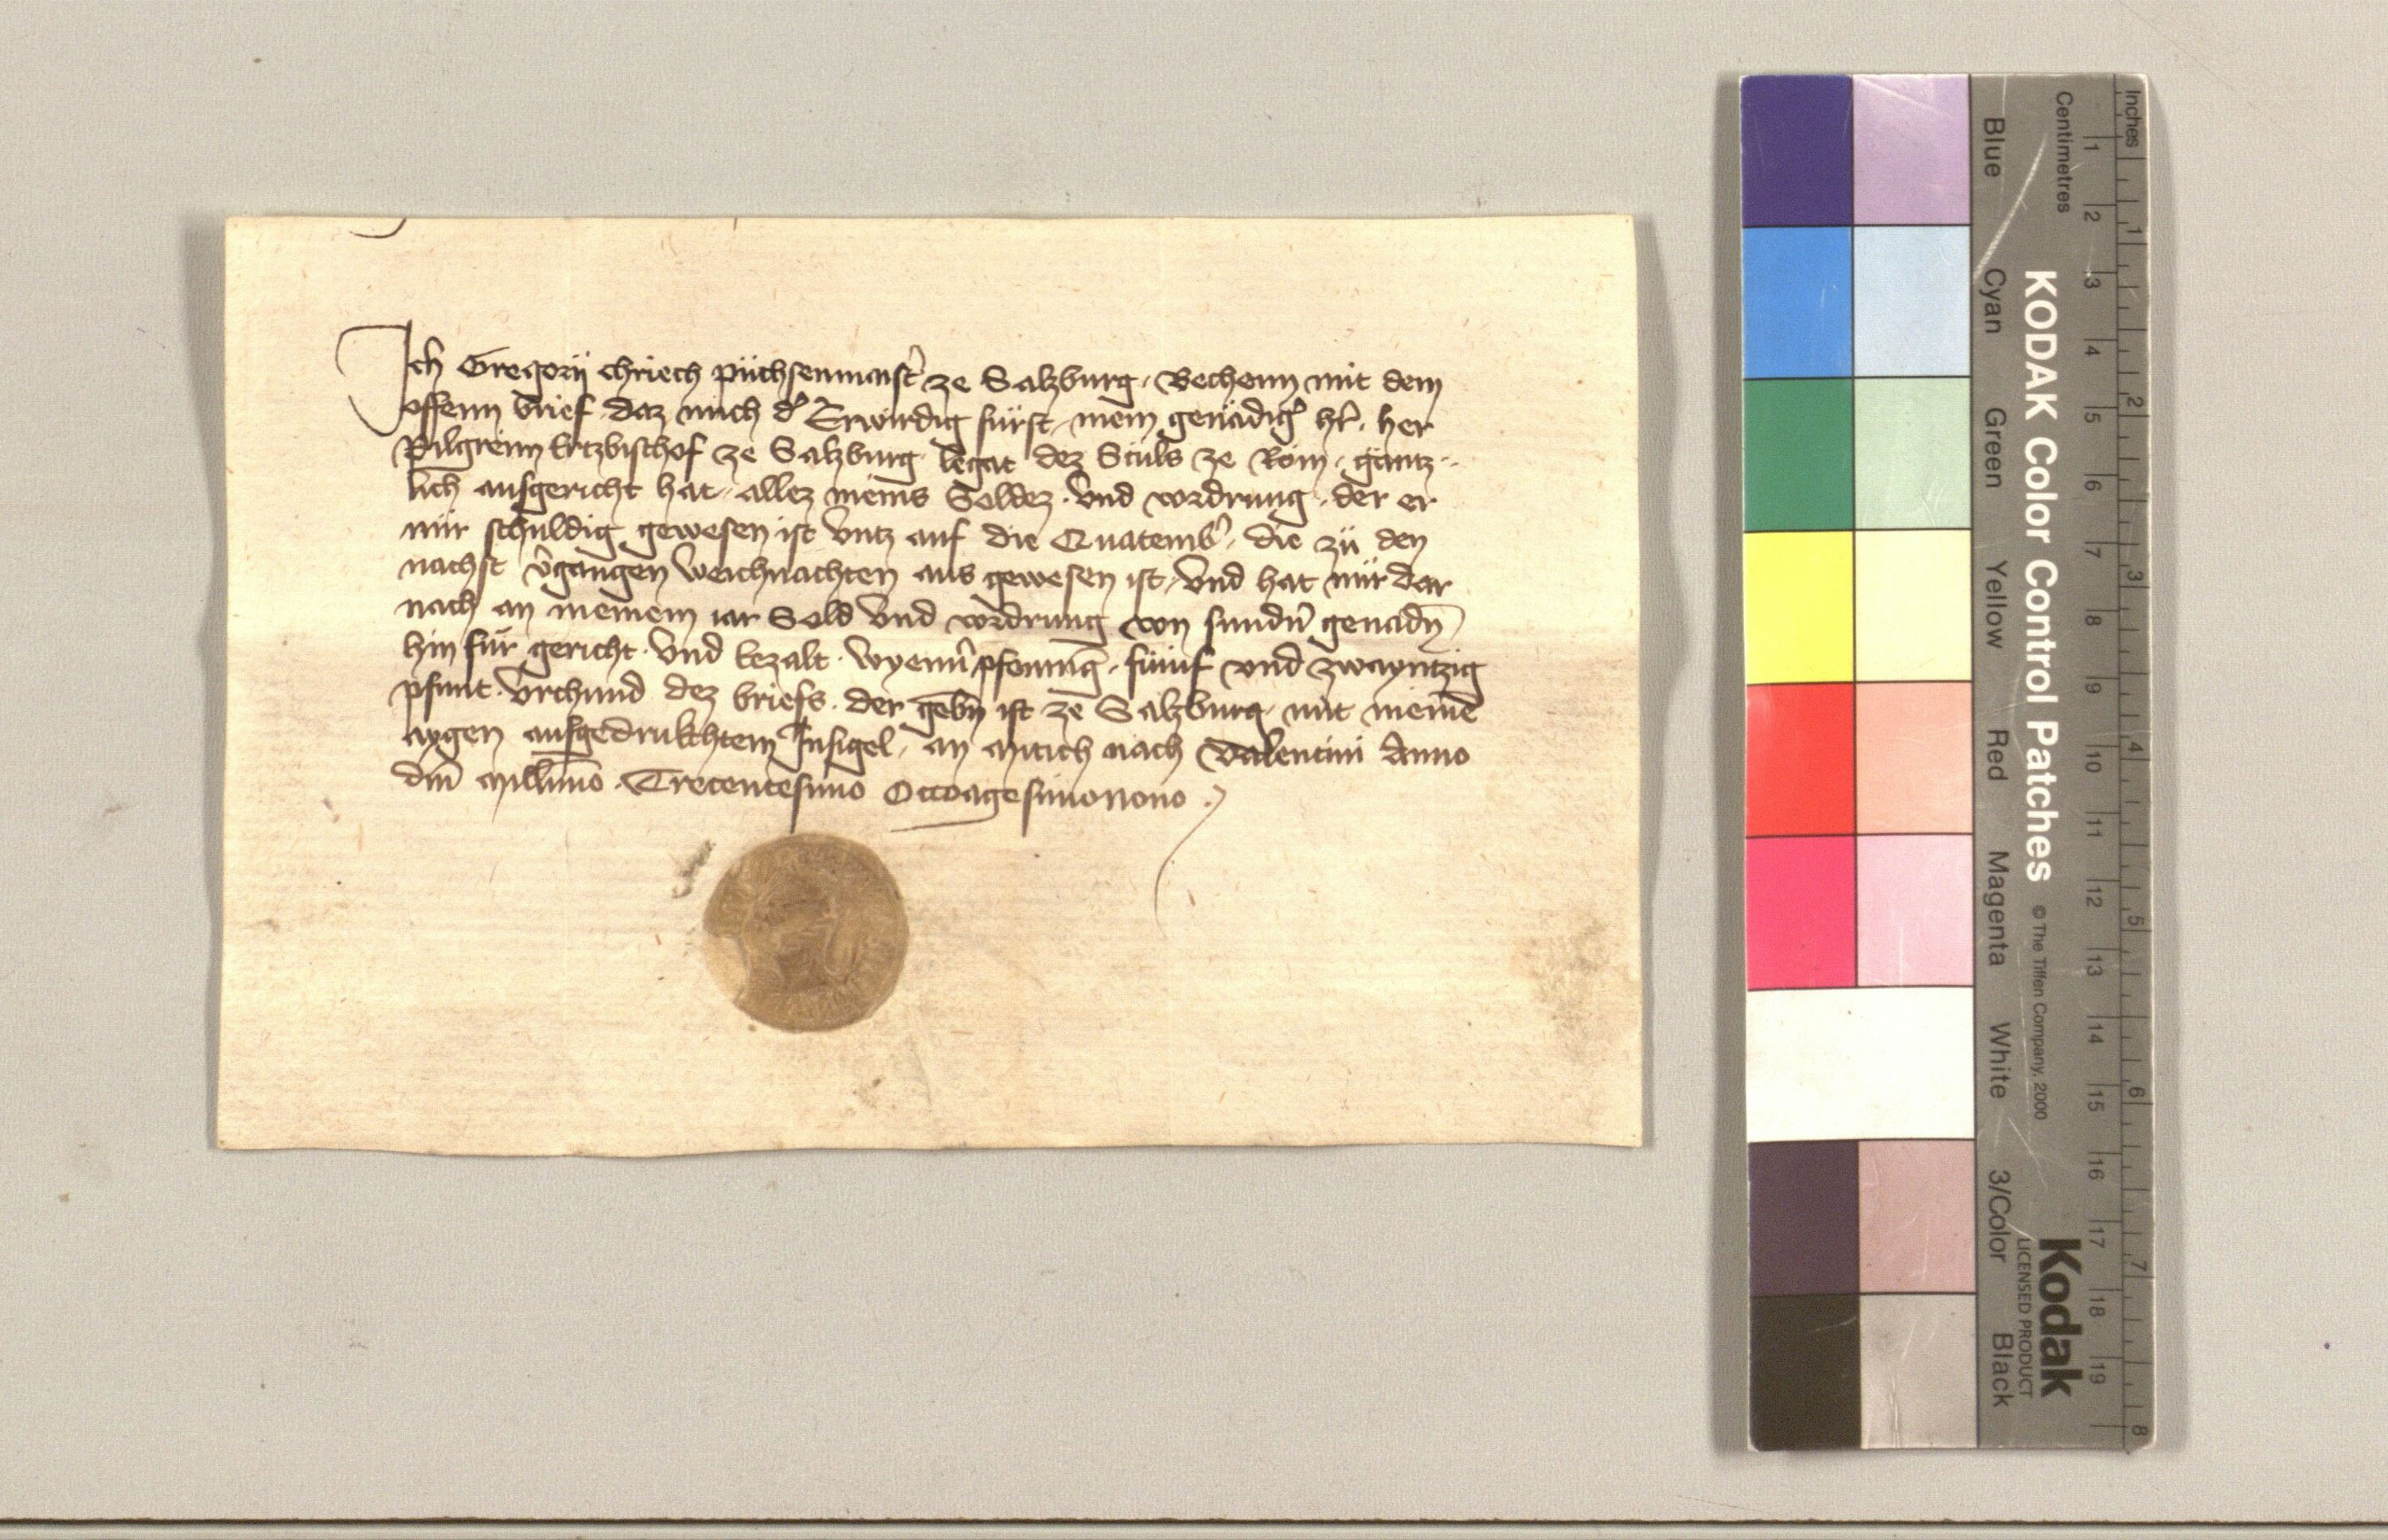 Ich Gregorij chriech püchsenmaist̉ ze Salzburg, Vechenn mit dem
offenn brief daz mich d̉ Erwirdig fürst, mein genädig̉ hr̉. her
Pilgreim Ertzbischof ze Salzburg legat dez Stuls ze Rom, gäntz-
lich ausgericht hat, allez meins Soldez. vnd vordrung, der er
mir schuldig gewesen ist vntz auf die Quatemb̉, die zü den
nachst v̉gangen Weichnachten aus gewesen ist, vnd hat mir dar
nach an meinem iar Sold vnd vordrung von sundn̉ genadn̄
hin für gericht. vnd bezalt. Wyenn̉ pfenninḡ, fünf vnd zwayntzig
pfunt. vrchund dez briefs. der gebn̄ ist ze Salzburg, mit meinē
aygen aufgedrukchtem Insigel, an Mitich nach Valentini Anno
dn̄i Mill̄imo. Trecentesimo Octoagesimonono.
Inches
Centimetres
1 2 3 4 5 6 7 8 9 10 11 12 13 14 15 16 17 18 19
1 2 3 4 5 6 7 8
KODAK Color Control Patches
© The Tiffen Company, 2000
Kodak
LICENSED PRODUCT
Blue Cyan Green Yellow Red Magenta White 3/Color Black